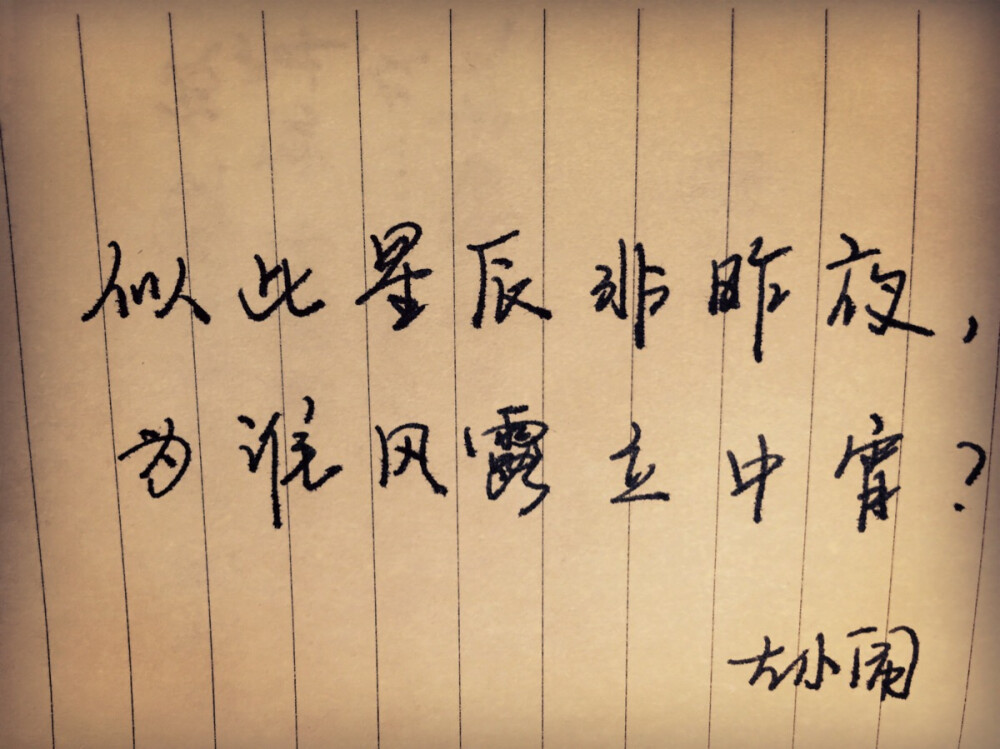 似此星辰非昨夜，
为谁风露立中宵？
左小闹